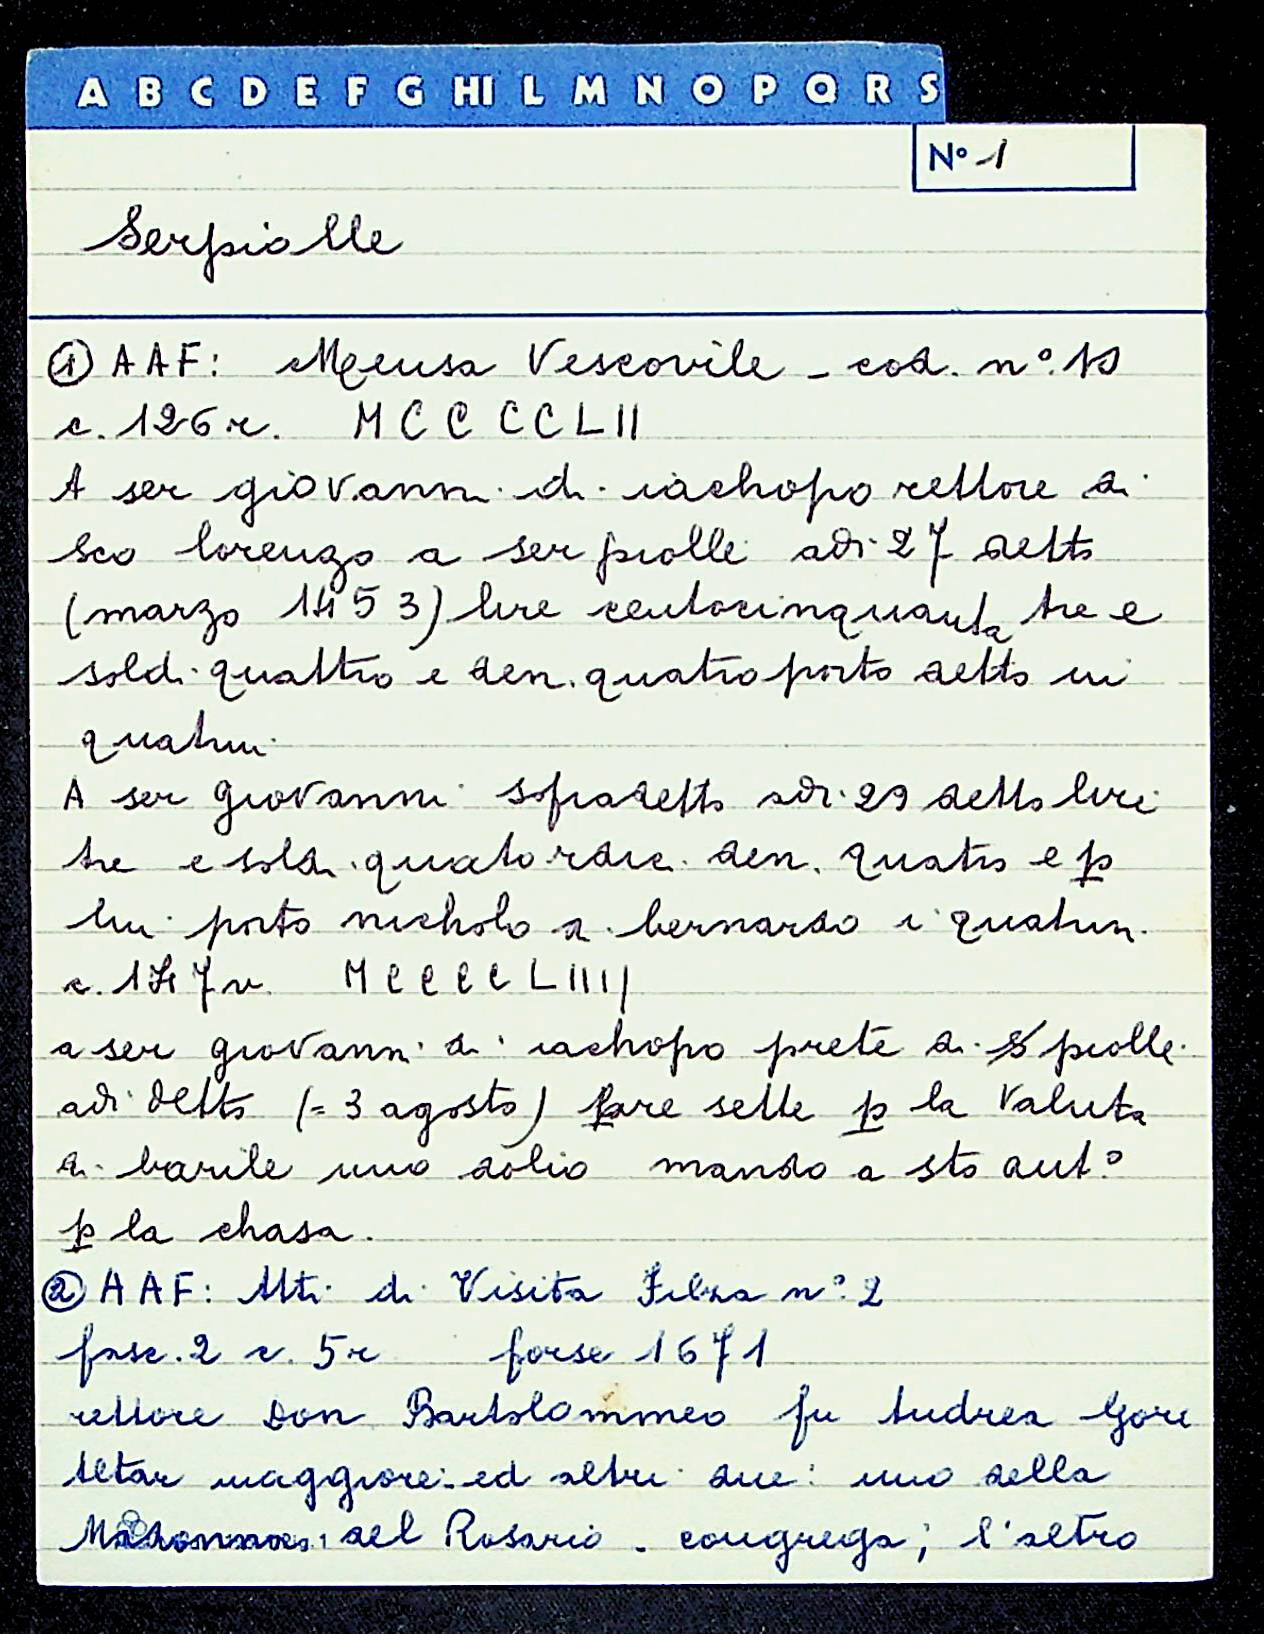 A B C D E F G HI L M N O P Q R S
N° 1
Serpiolle
① AAF: Mensa Vescovile - cod. n°.
c. 126 r. MCCCCLII
A ser giovanni di iachopo rettore di
Sco lorenzo a ser piolle adi 27 detto
(marzo 1453) lire centocinquanta tre e
soldi quattro e den. quatro porto detto in
quatrini
A ser giovanni sopradetto adi 29 detto lire
tre e soldi quatordici den. quatro e p
lui porto nicholo d. bernardo i quatrin.
c. 147 v. MCCCCLIIII
a ser giovanni di iachopo prete di S piolle
adi detto (= 3 agosto) lire sette p la valuta
di barile uno dolio mando a sto ant°
p la chasa.
② AAF: Atti di Visita Filza n° 2
fasc. 2 c. 5r forse 1671
rettore Don Bartolommeo fu Andrea Gori
Altar maggiore ed altri due: uno della
Madonna del Rosario - congrega; l'altro